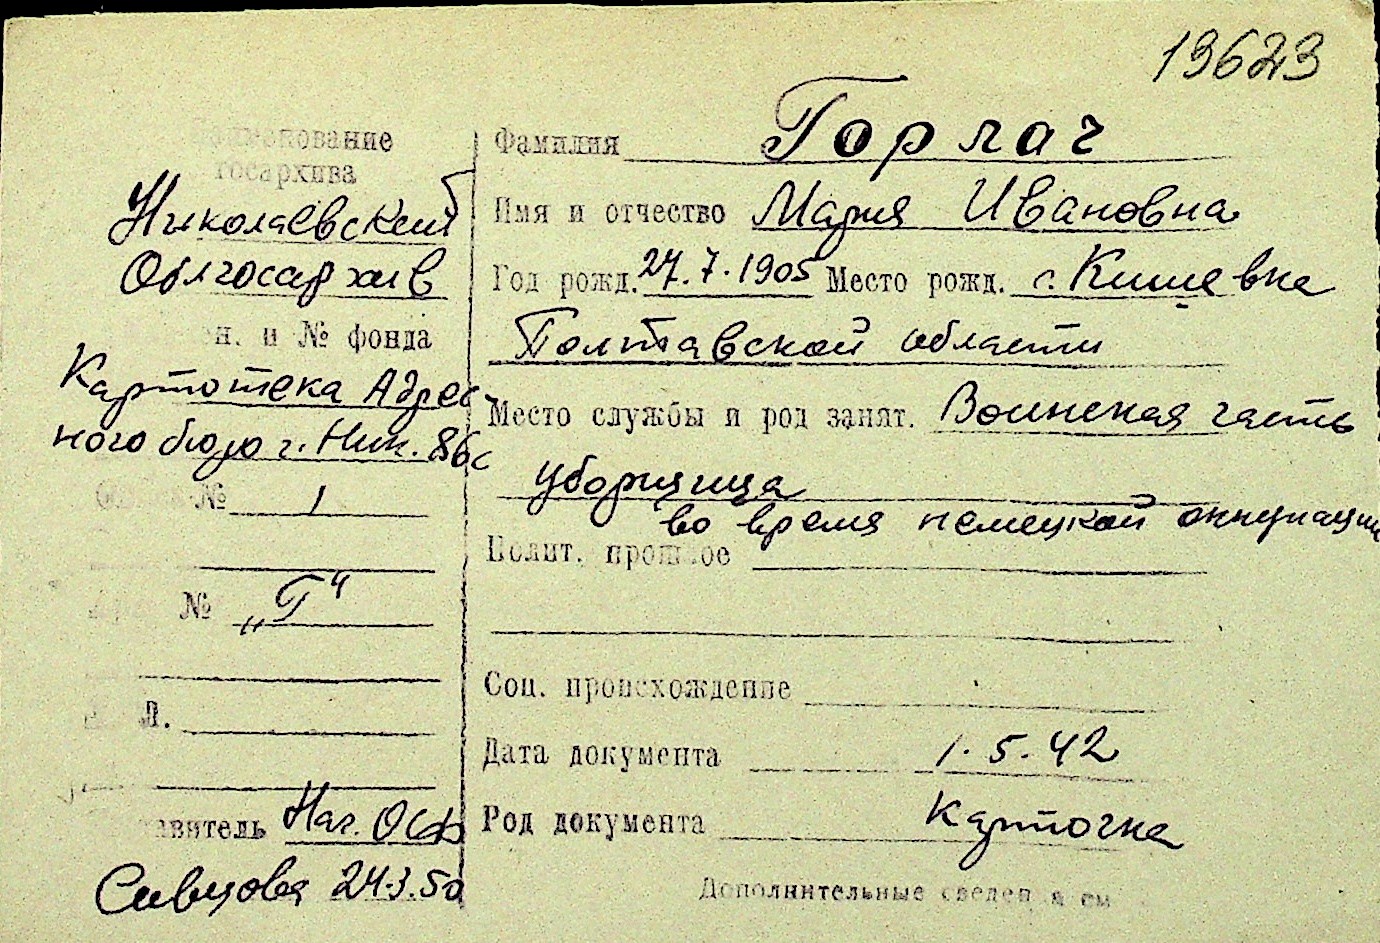 13623
Наименование
госархива
Николаевский
Облгосархив
н. и № фонда
Картотека Адрес-
ного бюро г. Ник. 86с
№ 1
№ „Г“
Л.
Нач. ОСФ
Сивцова 24.3.50
Фамилия Горлач
Имя и отчество Мария Ивановна
Год рожд. 27.7.1905 Место рожд. с. Кишевка
Полтавской области
Место службы и род занят. Воинская часть
уборщица
во время немецкой оккупации
Полит. прошлое
Соц. происхождение
Дата документа 1.5.42
Род документа карточка
Дополнительные сведен